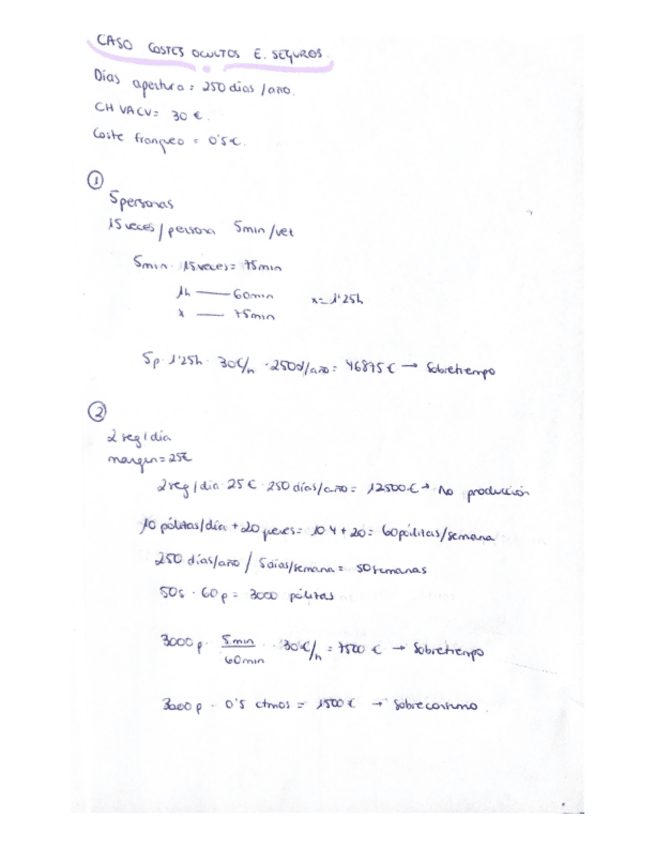 CASO COSTES OCULTOS E. SEGUROS.
Días apertura = 250 días / año.
CHVACV = 30 €.
Coste franqueo = 0'5 €.
①
5 personas
15 veces / persona 5min/vez
5min · 15 veces = 75min
1h — 60min x = 1'25h
x — 75min
5p · 1'25h · 30€/h · 250d/año = 46875 € → Sobretiempo
②
2 seg / día
margen = 25€
2 seg / día · 25 € · 250 días/año = 12500 € → No producción
10 pólizas/día + 20 jueves = 10·4 + 20 = 60 pólizas/semana
250 días/año / 5 días/semana = 50 semanas
50s · 60p = 3000 pólizas
3000p · 5min/60min · 30€/h = 7500 € → Sobretiempo
3000p · 0'5 ctmos = 1500 € → Sobreconsumo.